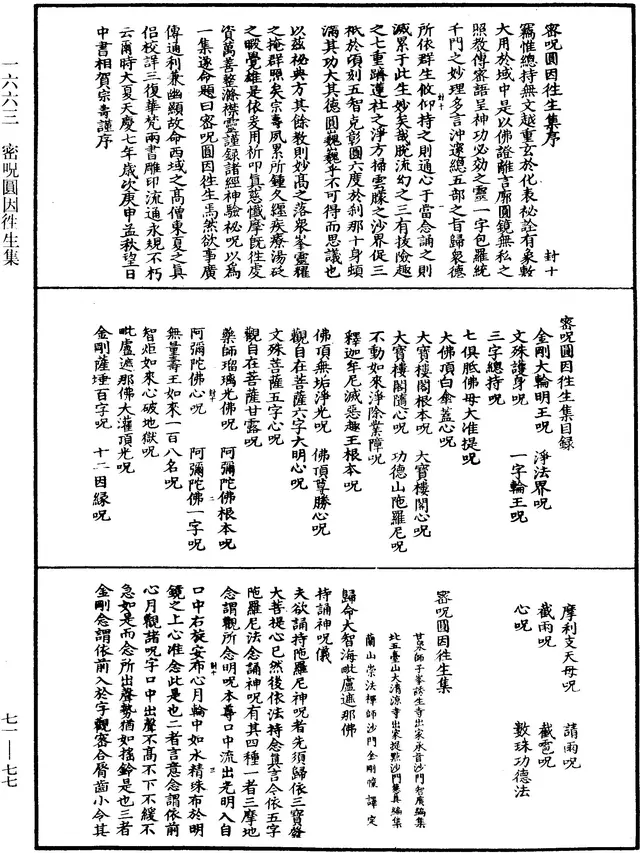 密呪圓因往生集序 封十
竊惟總持無文越重玄於化表祕詮有象敷
大用於域中是以佛證離言廓圓鏡無私之
照教傳密語呈神功必効之靈一字包羅統
千門之妙理多言沖邃總五部之旨歸衆德
所依群生攸仰持之則通心于當念誦之則
滅累于此生妙矣哉脫流幻之三有拔險趣
之七重躋蓮社之淨方掃雲朦之沙界促三
秖於頃刻五智克彰圓六度於剎那十身頓
滿其功大其德圓巍巍乎不可得而思議也
以茲祕典方其餘教則妙高之落衆峯靈耀
之掩群照矣宗壽夙累所鍾久纏疾療湯砭
之暇覺雄是依爰用祈叩真慈懺摩旣徃虔
資萬善整滌襟靈謹録諸經神驗祕呪以爲
一集遂命題曰密呪圓因往生焉然欲事廣
傳通利兼幽顯故命西域之高僧東夏之真
侣校詳三復華梵兩書雕印流通永規不朽
云爾時大夏天慶七年歲次庚申孟秋望日
中書相賀宗壽謹序
一六六三 密呪圓因徃生集
密呪圓因往生集目録
金剛大輪明王呪 淨法界呪
文殊護身呪 一字輪王呪
三字總持呪
七俱胝佛母大准提呪
大佛頂白傘蓋心呪
大寶樓閣根本呪 大寶樓閣心呪
大寶樓閣隨心呪 功德山陁羅尼呪
不動如來淨除業障呪
釋迦牟尼滅惡趣王根本呪
佛頂無垢淨光呪 佛頂尊勝心呪
觀自在菩薩六字大明心呪
文殊菩薩五字心呪
觀自在菩薩甘露呪
藥師瑠璃光佛呪 阿彌陀佛根本呪
阿彌陀佛心呪 阿彌陀佛一字呪
無量壽王如來一百八名呪
智炬如來心破地獄呪
毗盧遮那佛大灌頂光呪
金剛薩埵百字呪 十二因緣呪
摩利支天母呪 請雨呪
截雨呪 截雹呪
心呪 數珠功德法
密呪圓因往生集
甘泉師子峯誘生寺出家承旨沙門智廣編集
北五臺山大清涼寺出家提點沙門慧真編集
蘭山崇法禪師沙門金剛幢譯定
歸命大智海毗盧遮那佛
持誦神呪儀
夫欲誦持陁羅尼神呪者先須歸依三寶發
大菩提心已然後依法持念真言今依五字
陁羅尼法念誦神呪有其四種一者三摩地
念謂觀所念明呪本尊口中流出光明入自
口中右旋安布心月輪中如水精珠布於明
鏡之上心唯念此是也二者言音念謂依前
心月觀諸呪字口中出聲不高不下不緩不
急如是而念所出聲勢猶如搖鈴是也三者
金剛念謂依前入於字觀密合脣齒小令其
七一——七七